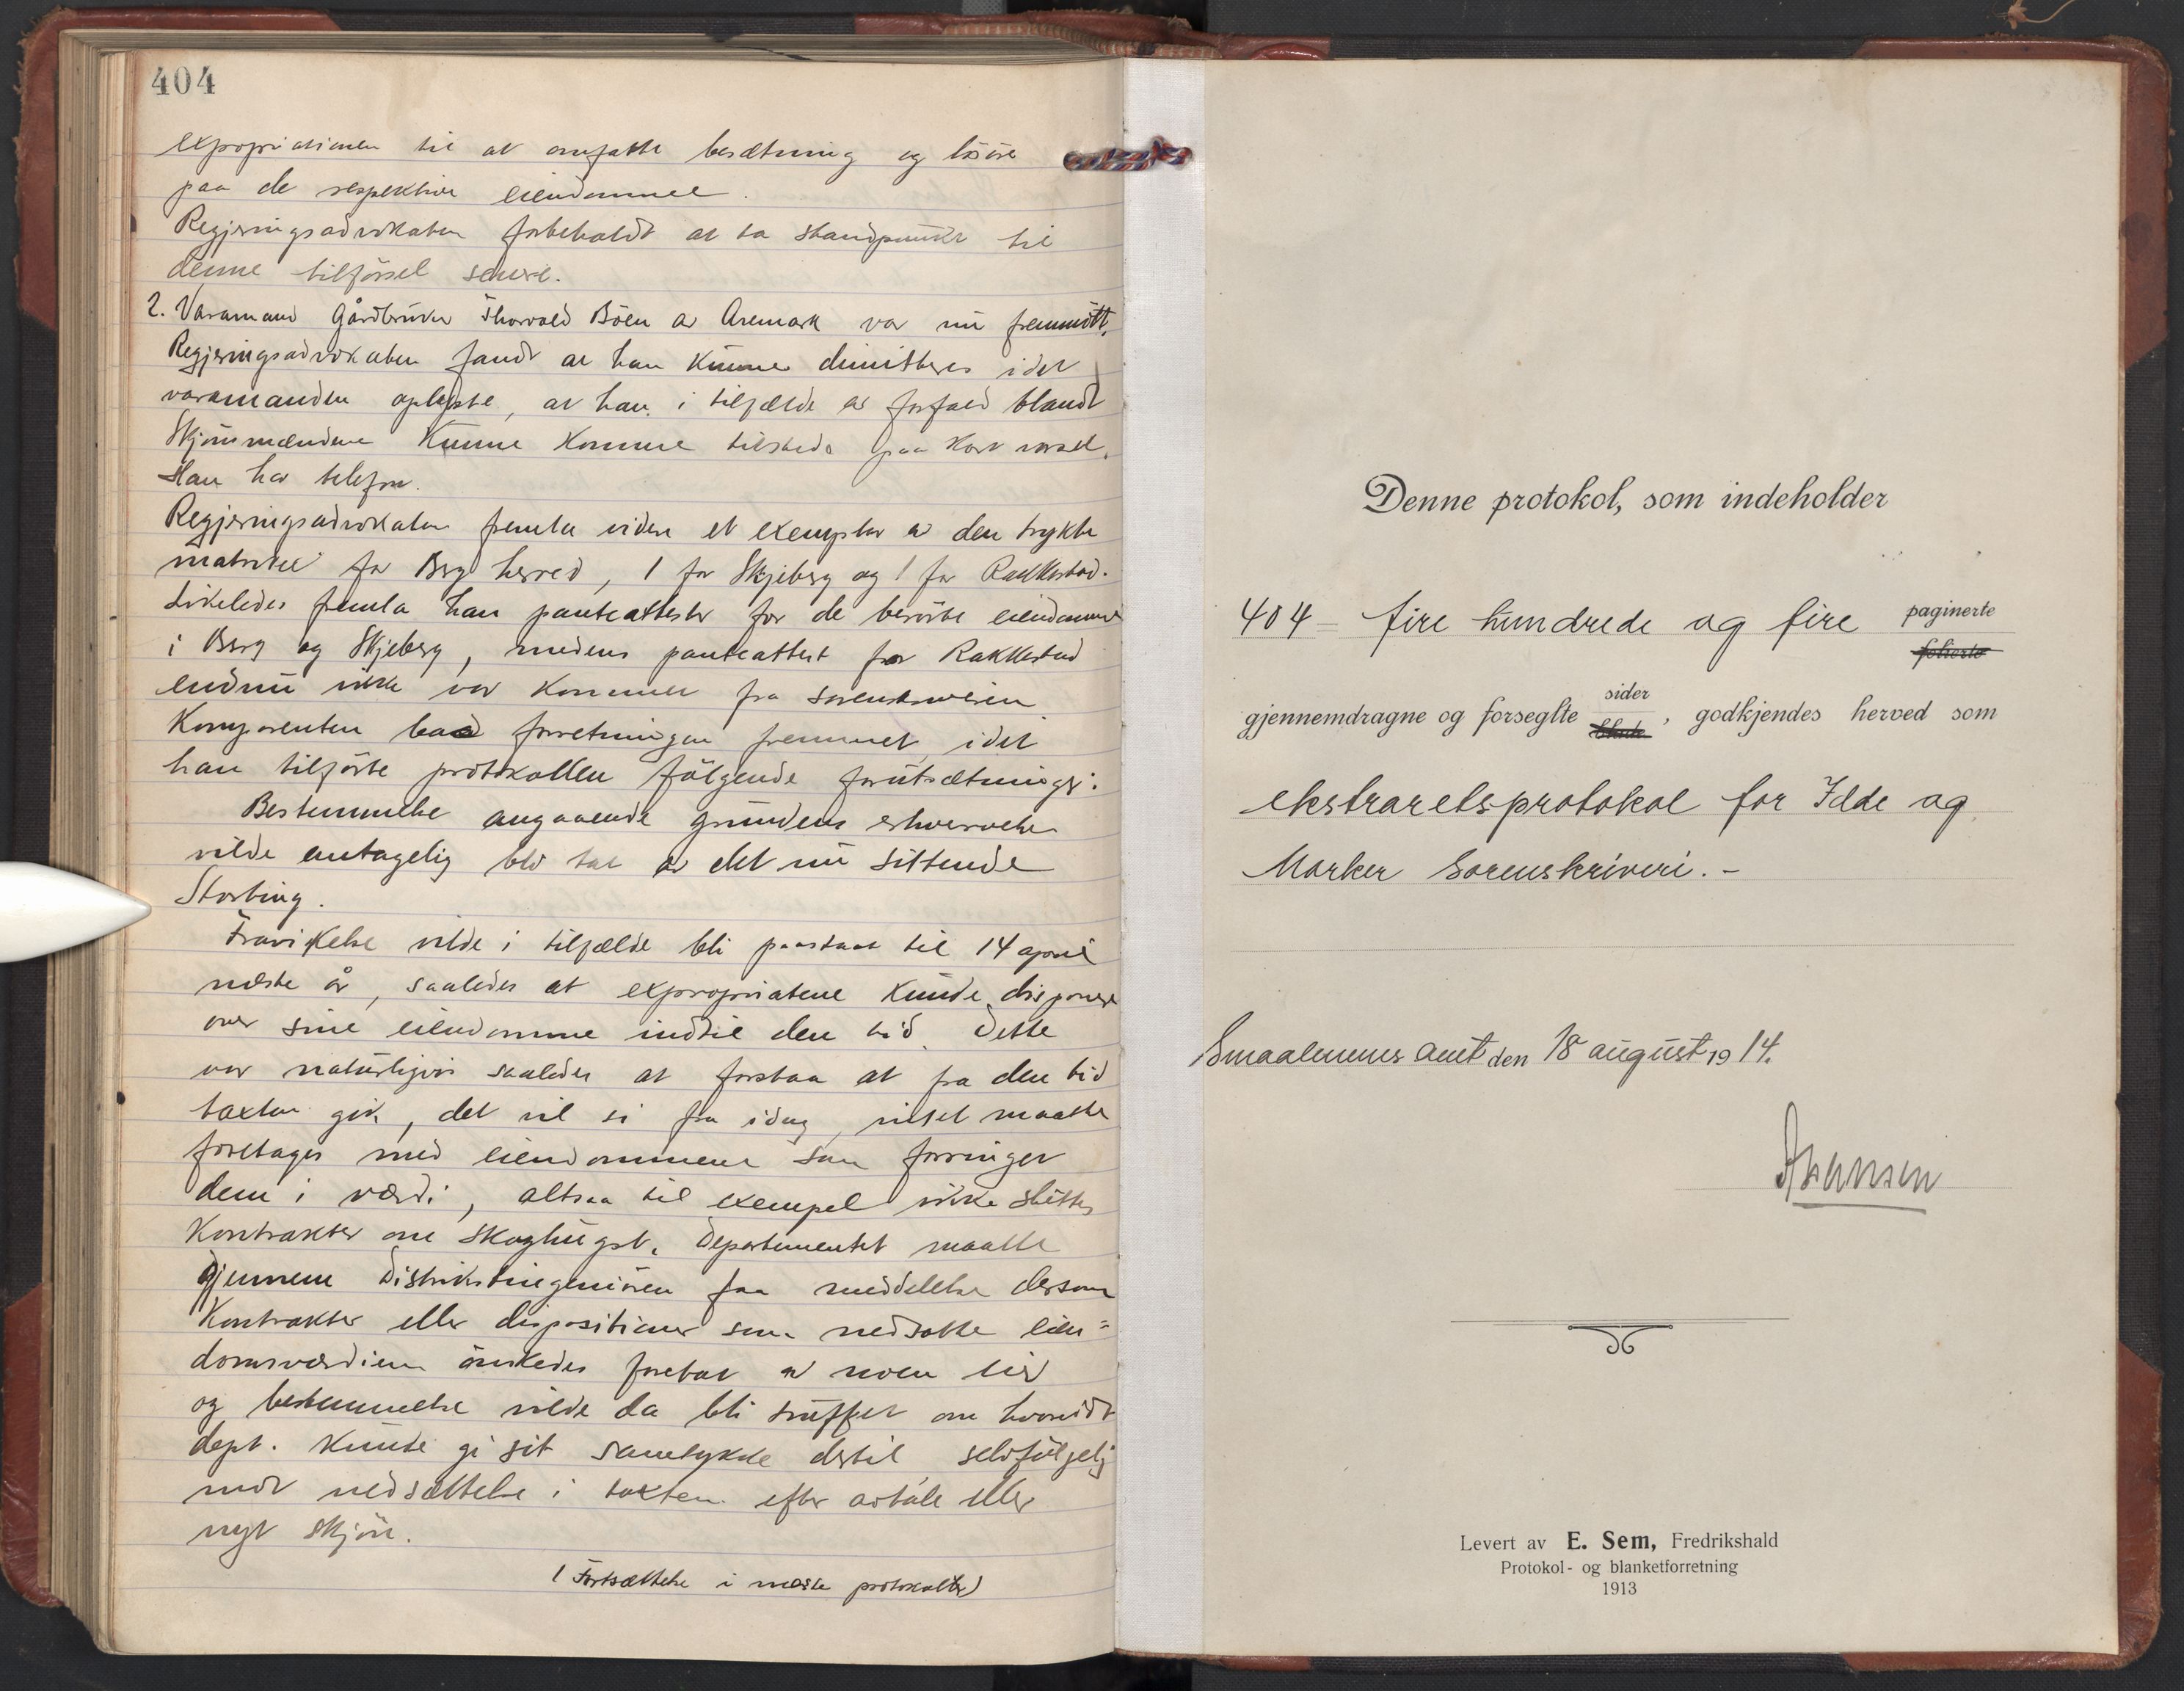 404
expropriationen til at omfatte besætning og lösöre
paa de respektive eiendomme.
Regjeringsadvokaten forbeholdt at ta standpunkt til
denne tilförsel senere.
2. Varamand Gårdbruker Thorvald Böen av Aremark var nu fremmött.
Regjeringsadvokaten fandt at han kunne dimitteres idet
varamanden oplyste, at han i tilfælde av forfald blandt
Skjönsmændene kunne komme tilstede paa kort varsel.
Han har telefon.
Regjeringsadvokaten fremla videre et exemplar av den trykte
matrikel for Berg herred, 1 for Skjeberg og 1 for Rakkestad.
Likeledes fremla han panteattester for de berörte eiendomme
i Berg og Skjeberg, medens panteattest for Rakkestad
endnu ikke var kommet fra sorenskriveren.
Komparenten bad forretningen fremmet, idet
han tilförte protokollen fölgende forutsætninger:
Bestemmelse angaaende grundens erhvervelse
vilde antagelig bli tat av det nu sittende
Storting.
Fravikelse vilde i tilfælde bli paastaat til 14 april
næste år, saaledes at expropriatene kunde disponere
over sine eiendomme indtil den tid. Dette
var naturligvis saaledes at forstaa at fra den tid
taxten gik, det vil si fra idag, intet maatte
foretages med eiendommene som forringer
dem i værdi, altsaa til exempel ikke sluttes
Kontrakter om skoghugst. Departementet maatte
gjennem Distriktsingeniören faa meddelelse dersom
Kontrakter eller dispositioner som nedsatte eien=
domsværdien önskedes foretat av noen eier
og bestemmelse vilde da bli truffet om hvorvidt
dept. kunde gi sit samtykke dertil, selvfölgelig
mot nedsættelse i taxten efter avtale eller
nyt skjön.
(Fortsættelse i næste protokoll)
Denne protokol, som indeholder
404 = fire hundrede og fire paginerte
folierte
gjennemdragne og forseglte sider
blade, godkjendes herved som
ekstraretsprotokol for Idde og
Marker Sorenskriveri. -
Smaalenenes amt den 18 august 1914.
Levert av E. Sem, Fredrikshald
Protokol- og blanketforretning
1913